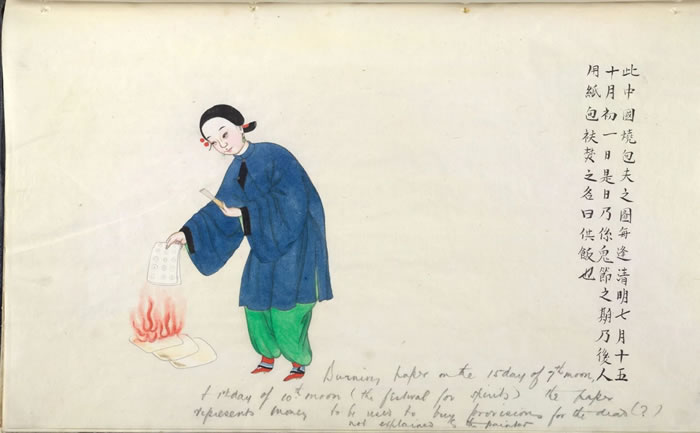 此中國燒包夫之圖每逢清明七月十五
十月初一日是日乃係鬼節之期乃後人
用紙包袱焚之名曰供飯也
Burning paper on the 15 day of 7th moon,
& 1st day of 10th moon (the festival for spirits) the paper
represents money to be used to buy provisions for the dead (?)
not explained the painter